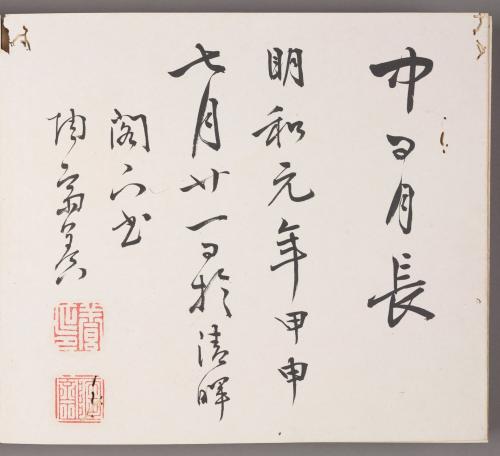 中日月長
明和元年甲申
七月廿一日於清暉
閣下書
陶齋養